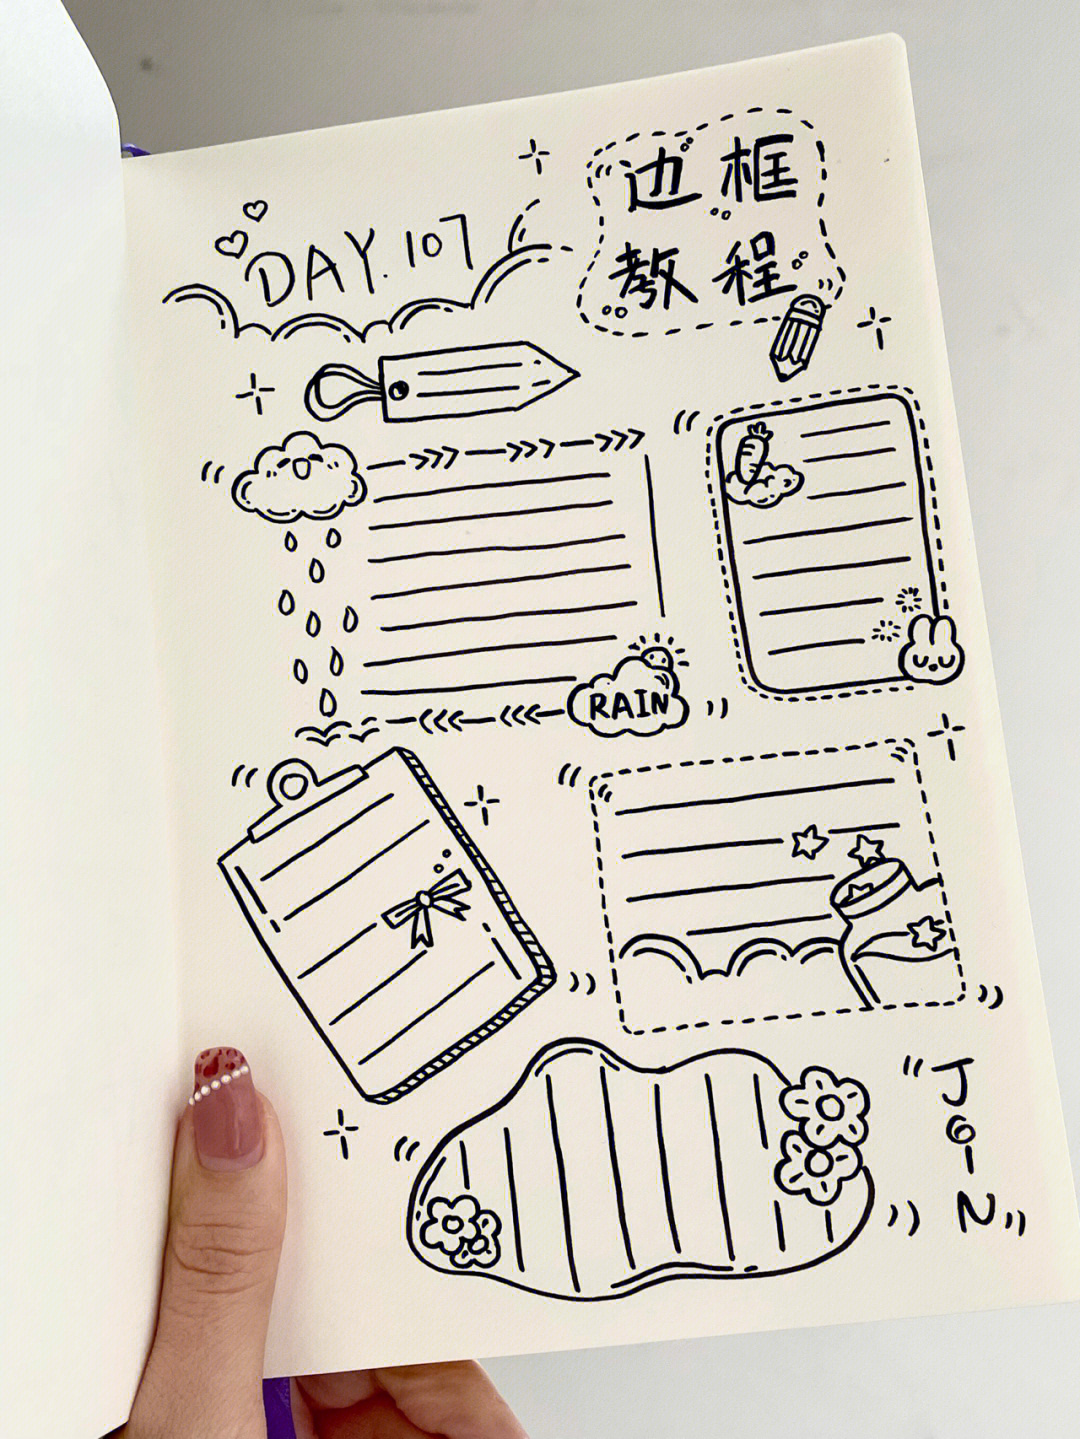 边框
教程
DAY.107
RAIN
JOIN